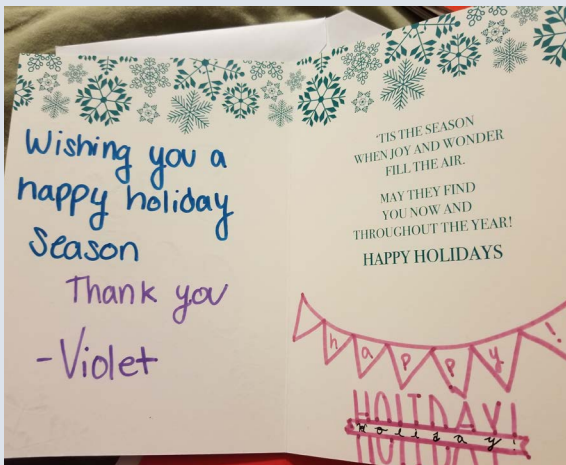 Wishing you a
happy holiday
Season
Thank you
-Violet
'TIS THE SEASON
WHEN JOY AND WONDER
FILL THE AIR.
MAY THEY FIND
YOU NOW AND
THROUGHOUT THE YEAR!
HAPPY HOLIDAYS
happy!
HOLIDAY!
Holiday!